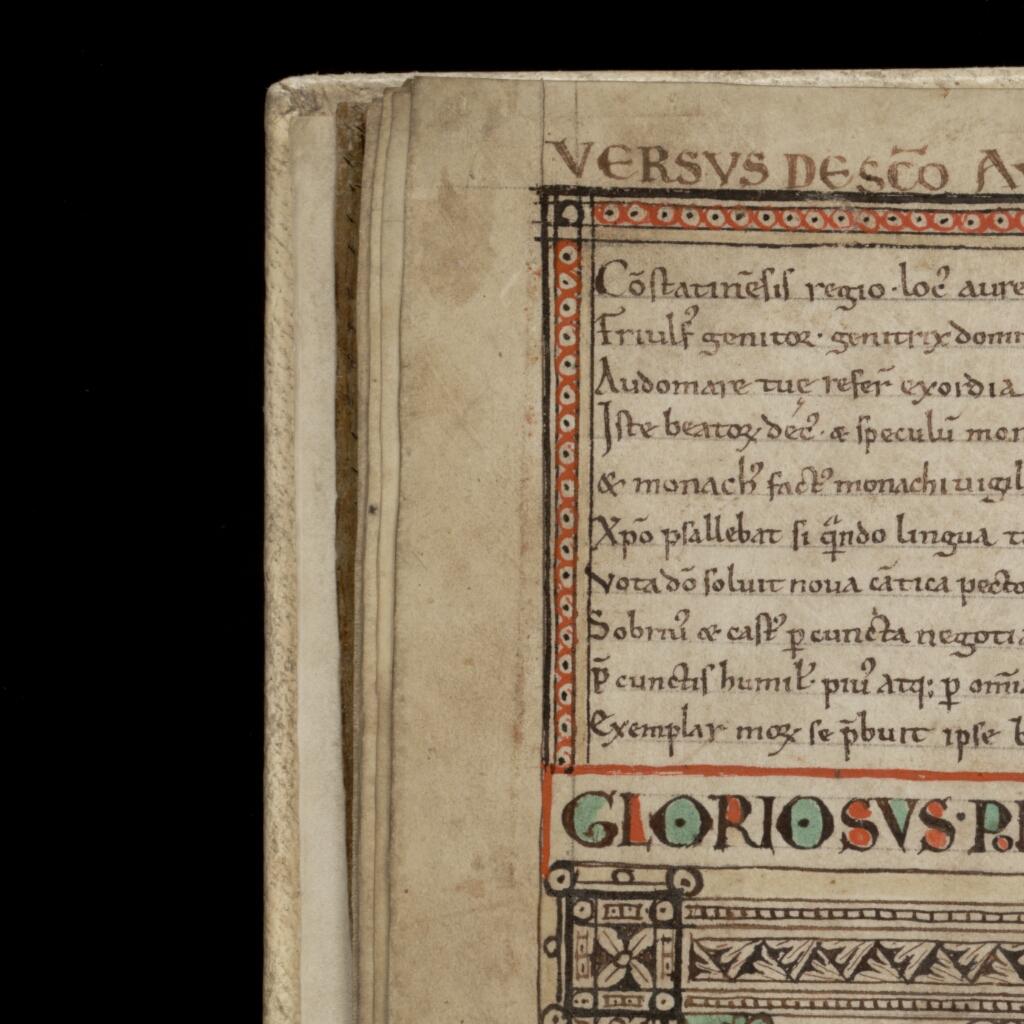 VERSVS DE SC̄O AV
Cōstatinēsis regio · loc᾽ aure
Friulf᾽ genitor · genitrix domi
Audomare tuę refer̄ exordia
Iste beatoꝝ dec᾽ · & speculū mon
& monach᾽ fact᾽ monachi uigil
Xp̄o psallebat si qᵃndo lingua t
Vota dō soluit noua cātica pecto
Sobriu᾽ & cast᾽ ꝑ cuncta negoti
P̄ cunctis humil᾽ piu᾽ atq; ꝑ om̄ia
Exemplar moꝝ se p̄buit ipse b
GLORIOSVS · P